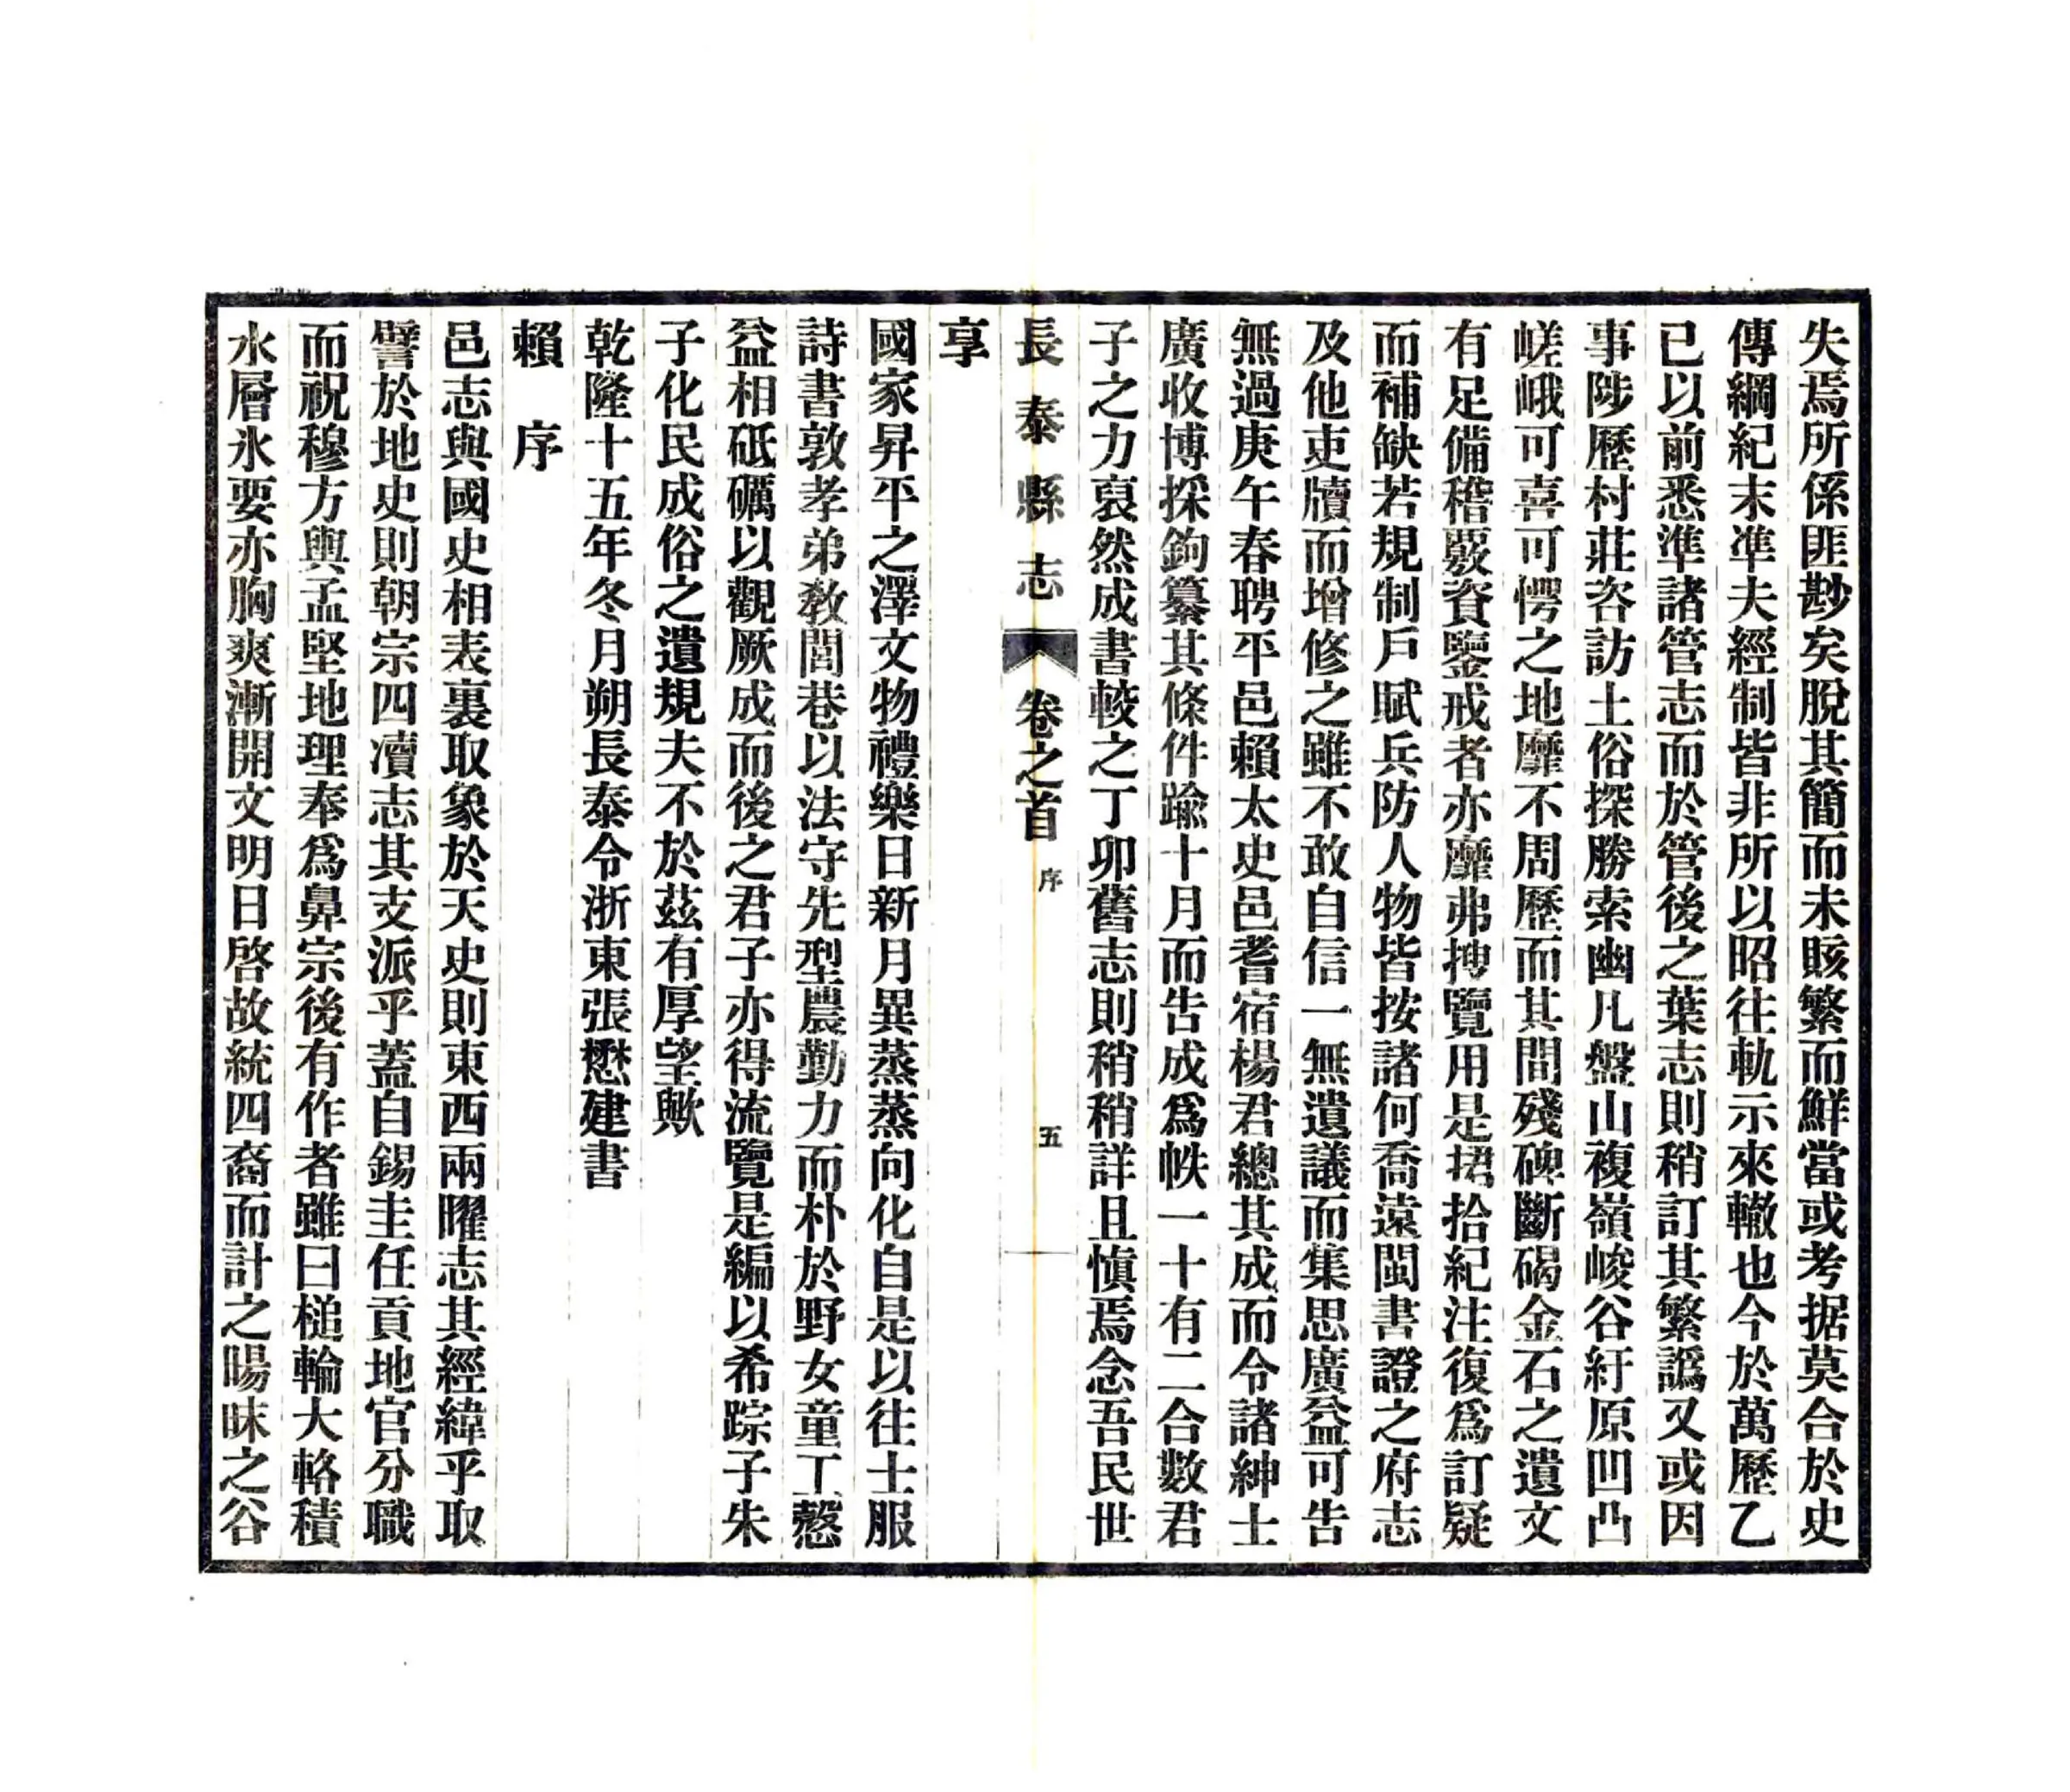 失焉所係匪尠矣脫其簡而未賅繁而鮮當或考据莫合於史
傳綱紀末準夫經制皆非所以昭往軌示來轍也今於萬歷乙
已以前悉準諸管志而於管後之葉志則稍訂其繁譌又或因
事陟歷村莊咨訪土俗探勝索幽凡盤山複嶺峻谷紆原凹凸
嵯峨可喜可愕之地靡不周歷而其間殘碑斷碣金石之遺文
有足備稽覈資鑒戒者亦靡弗搜覽用是捃拾紀注復爲訂疑
而補缺若規制戶賦兵防人物皆按諸何喬遠閩書證之府志
及他吏牘而增修之雖不敢自信一無遺議而集思廣益可告
無過庚午春聘平邑賴太史邑耆宿楊君總其成而令諸紳士
廣收博採鉤纂其條件踰十月而告成爲帙一十有二合數君
子之力裒然成書較之丁卯舊志則稍稍詳且愼焉念吾民世
長泰縣志 卷之首 序 五
享
國家昇平之澤文物禮樂日新月異蒸蒸向化自是以往士服
詩書敦孝弟敎閭巷以法守先型農勤力而朴於野女童工愨
益相砥礪以觀厥成而後之君子亦得流覽是編以希踪子朱
子化民成俗之遺規夫不於茲有厚望歟
乾隆十五年冬月朔長泰令浙東張懋建書
賴 序
邑志與國史相表裏取象於天史則東西兩曜志其經緯乎取
譬於地史則朝宗四瀆志其支派乎蓋自錫圭任貢地官分職
而祝穆方輿孟堅地理奉爲鼻宗後有作者雖曰椎輪大輅積
水層氷要亦胸爽漸開文明日啓故統四裔而計之暘昧之谷